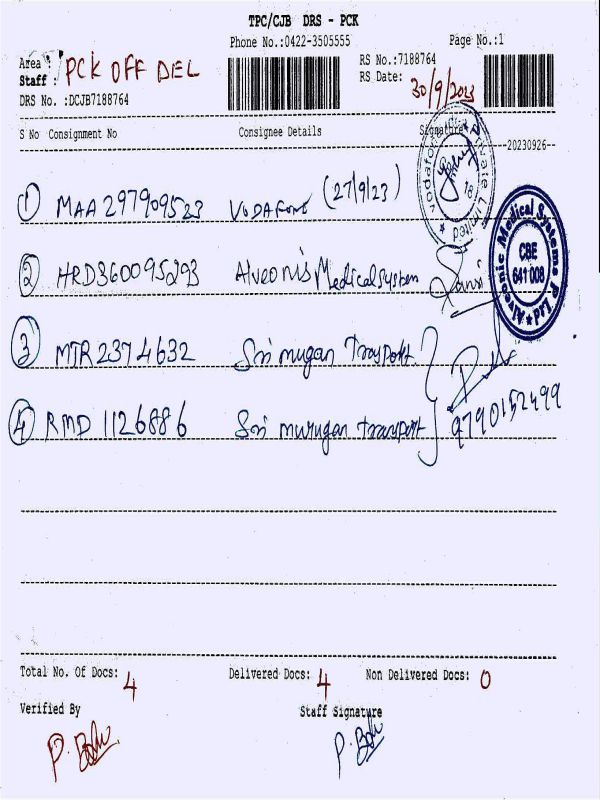 TPC/CJB DRS - PCK
Phone No.:0422-3505555 Page No.:1
Area : PCK OFF DEL RS No.:7188764
Staff : RS Date: 30/9/2023
DRS No. :DCJB7188764
S No Consignment No Consignee Details Signature
--20230926--
1 MAA297909523 VODAFONE (27/9/23)
vodafone Private Limited
18
2 HRD360095293 Alveonis Medical System
Alveonic Medical Systems P Ltd
CBE
641 008
3 MTR2374632 Sri mugan Transport
4 RMD 1126886 Sri murugan transport
9790152499
Total No. Of Docs: 4 Delivered Docs: 4 Non Delivered Docs: 0
Verified By Staff Signature